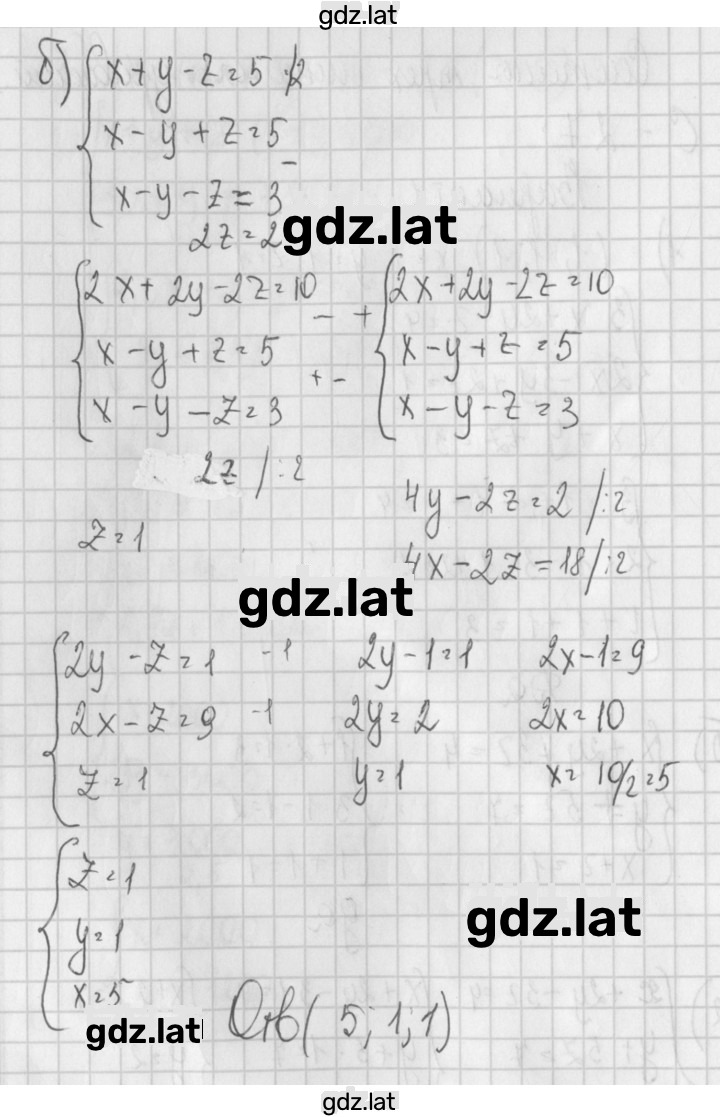 gdz.lat
б) x+y-z=5 ·2
x-y+z=5
x-y-z=3 -
2z=2
gdz.lat
2x+2y-2z=10
x-y+z=5
x-y-z=3
- +
+ -
2x+2y-2z=10
x-y+z=5
x-y-z=3
2z /:2
z=1
4y-2z=2 /:2
4x-2z=18 /:2
gdz.lat
2y-z=1 -1
2x-z=9 -1
z=1
2y-1=1
2y=2
y=1
2x-1=9
2x=10
x=10/2=5
z=1
y=1
x=5
gdz.lat
gdz.lat
Отв(5;1;1)
gdz.lat